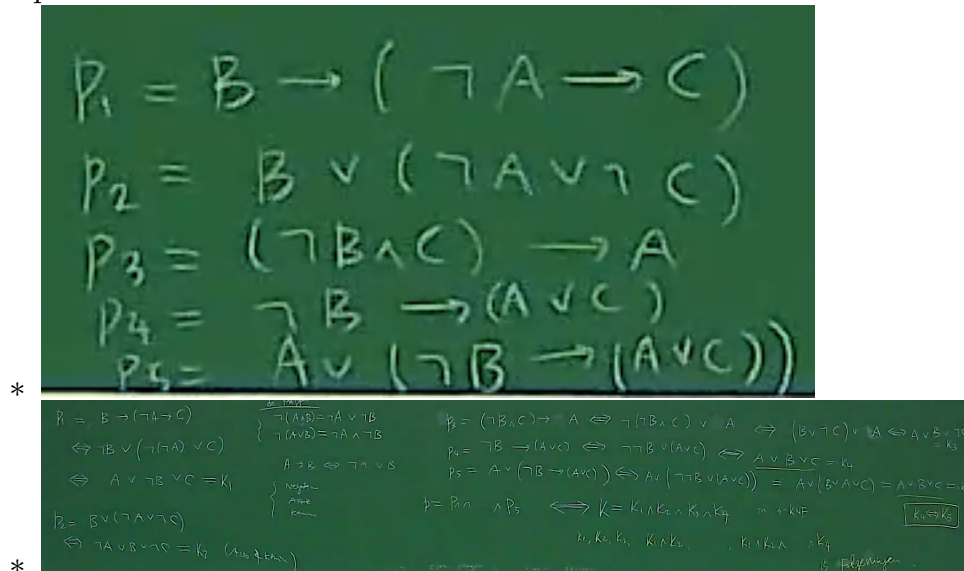 *
P₁ = B → ( ¬ A → C )
P₂ = B ∨ ( ¬ A ∨ ¬ C )
P₃ = ( ¬ B ∧ C ) → A
P₄ = ¬ B → ( A ∨ C )
P₅ = A ∨ ( ¬ B → ( A ∨ C ) )
*
P₁ = B → (¬A → C)
⇔ ¬B ∨ (¬(¬A) ∨ C)
⇔ A ∨ ¬B ∨ C = K₁
P₂ = B ∨ (¬A ∨ ¬C)
⇔ ¬A ∨ B ∨ ¬C = K₂
¬(A∧B) = ¬A ∨ ¬B
¬(A∨B) = ¬A ∧ ¬B
A → B ⇔ ¬A ∨ B
P₃ = (¬B ∧ C) → A ⇔ ¬(¬B ∧ C) ∨ A ⇔ (B ∨ ¬C) ∨ A ⇔ A ∨ B ∨ ¬C
= K₃
P₄ = ¬B → (A∨C) ⇔ ¬¬B ∨ (A∨C) ⇔ A ∨ B ∨ C = K₄
P₅ = A ∨ (¬B → (A∨C)) ⇔ A ∨ (¬¬B ∨ (A∨C)) = A ∨ (B ∨ A ∨ C) = A ∨ B ∨ C =
P = P₁ ∧ ∧ P₅ ⇔ K = K₁ ∧ K₂ ∧ K₃ ∧ K₄ in 3-KNF
K₁, K₂, K₃, K₁∧K₂, , K₁∧K₂∧ ∧K₄
15 Folgerungen